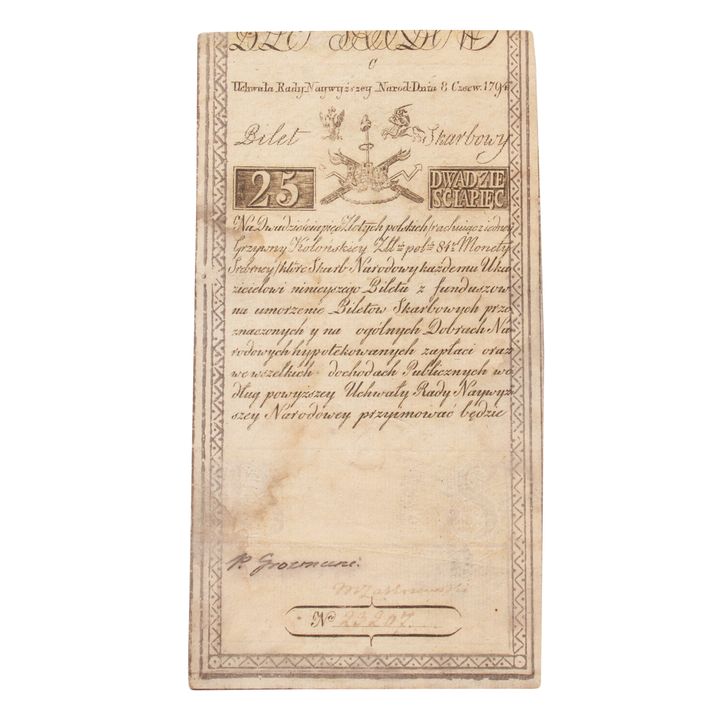 C
Uchwała Rady Naywyższey Narod: Dnia 8 Czerw. 1794
Bilet Skarbowy
25 DWADZIE
ŚCIAPIĘĆ
Na Dwadzieściapięć Złotych polskich/rachuiąc z iedney
Grzywny Kolońskiey Złł: pol: 84¼ Monety
Srebrney/które Skarb Narodowy każdemu Uka
zicielowi ninieyszego Biletu z funduszow
na umorzenie Biletów Skarbowych prze
znaczonych y na ogólnych Dobrach Na
rodowych hypotekowanych zapłaci oraz
we wszelkich dochodach Publicznych we
dług powyższey Uchwały Rady Naywyż
szey Narodowey przyimować będzie
P. Grozmani.
M Zakrzewski
No 23207.